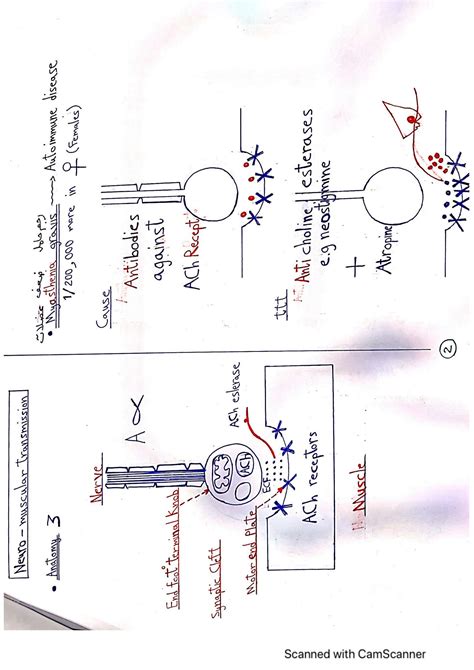 Neuro-muscular transmission
• Anatomy 3
Nerve
A α
End foot° terminal Knob
Synaptic Cleft
Motor end Plate
ACh
ECF
ACh esterase
ACh receptors
Muscle
• Myasthenia gravis → Autoimmune disease
1/200,000 more in ♀ (Females)
Cause
Antibodies
against
ACh Recept
ttt
Anti choline esterases
e.g neostigmine
+
Atropine
2
Scanned with CamScanner